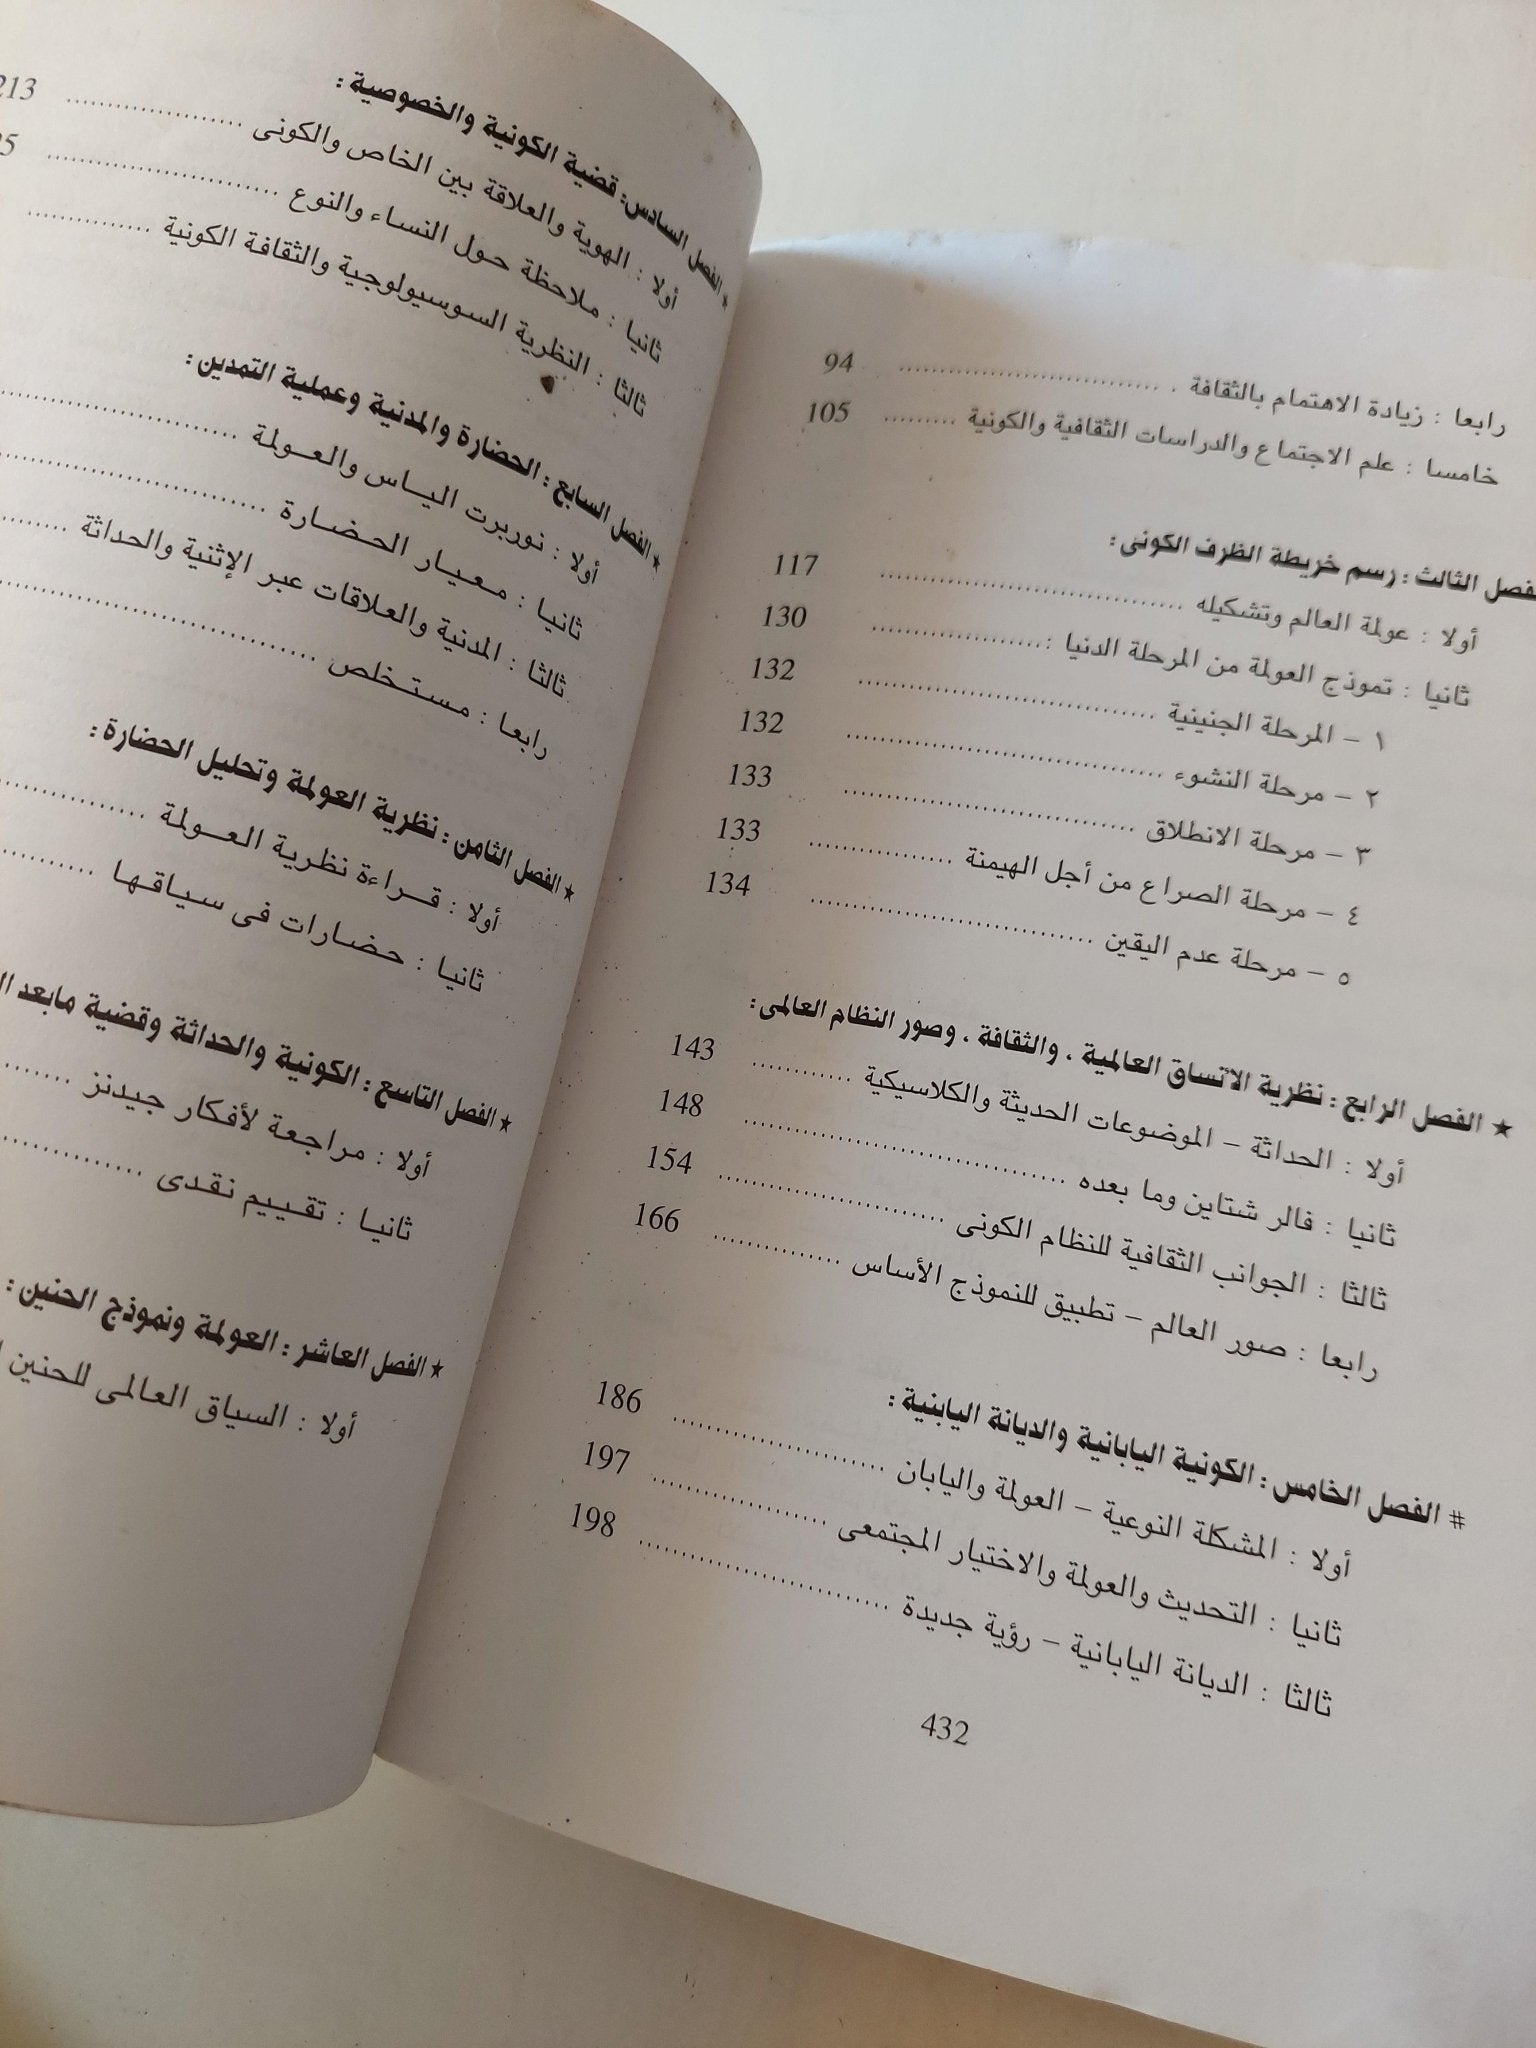 رابعا : زيادة الاهتمام بالثقافة . .............................. 94
خامسا : علم الاجتماع والدراسات الثقافية والكونية ......... 105
الفصل الثالث : رسم خريطة الظرف الكونى :
أولا : عولمة العالم وتشكيله ................................ 117
ثانيا : تموذج العولمة من المرحلة الدنيا : ..................... 130
١ - المرحلة الجنينية ................................ 132
٢ - مرحلة النشوء ................................ 132
٣ - مرحلة الانطلاق ................................ 133
٤ - مرحلة الصراع من أجل الهيمنة ................. 133
٥ - مرحلة عدم اليقين ................................ 134
★ الفصل الرابع : نظرية الأنساق العالمية ، والثقافة ، وصور النظام العالمى :
أولا : الحداثة – الموضوعات الحديثة والكلاسيكية ............ 143
ثانيا : فالر شتاين وما بعده ................................ 148
ثالثا : الجوانب الثقافية للنظام الكونى ......................... 154
رابعا : صور العالم – تطبيق للنموذج الأساس ............... 166
# الفصل الخامس : الكونية اليابانية والديانة اليابنية :
أولا : المشكلة النوعية – العولمة واليابان ........................ 186
ثانيا : التحديث والعولمة والاختيار المجتمعى .................... 197
ثالثا : الديانة اليابانية – رؤية جديدة ............................ 198
432
★ الفصل السادس : قضية الكونية والخصوصية :
أولا : الهوية والعلاقة بين الخاص والكونى .................... 213
ثانيا : ملاحظة حول النساء والنوع ............................
ثالثا : النظرية السوسيولوجية والثقافة الكونية ..............
★ الفصل السابع : الحضارة والمدنية وعملية التمدين :
أولا : نوربرت الياس والعولمة ............................
ثانيا : معيار الحضارة ............................
ثالثا : المدنية والعلاقات عبر الإثنية والحداثة ........
رابعا : مستخلص ................................
★ الفصل الثامن : نظرية العولمة وتحليل الحضارة :
أولا : قراءة نظرية العولمة .................
ثانيا : حضارات فى سياقها ..............
★ الفصل التاسع : الكونية والحداثة وقضية مابعد
أولا : مراجعة لأفكار جيدنز ........
ثانيا : تقييم نقدى ................
★ الفصل العاشر : العولمة ونموذج الحنين :
أولا : السياق العالمى للحنين